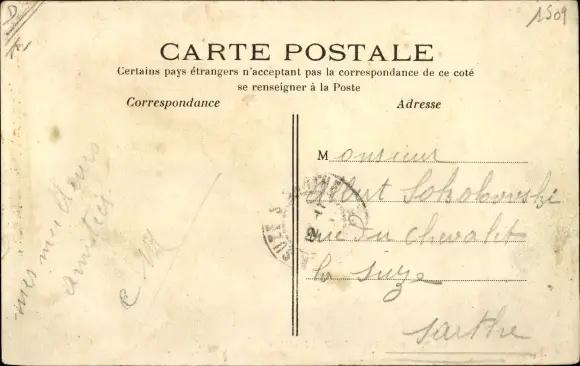 1509
CARTE POSTALE
Certains pays étrangers n'acceptant pas la correspondance de ce coté
se renseigner à la Poste
Correspondance
Adresse
mes meilleurs
amitiés
Monsieur
Albert Sokolovski
rue du Chevalet
la Suze
Sarthe
SUZE